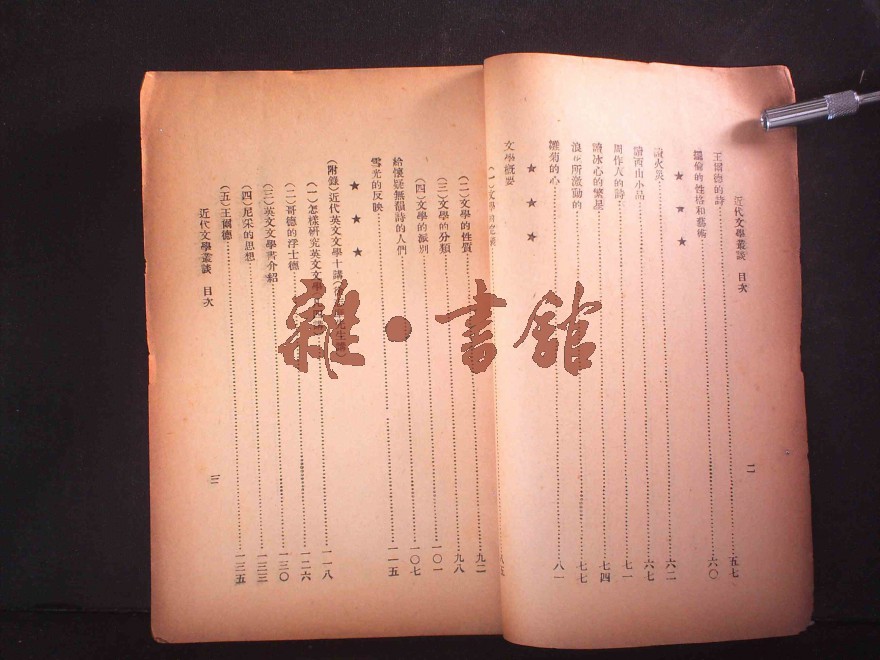 近代文學叢談 目次 二
王爾德的詩 五七
的性格和藝術 六〇
★ ★ ★
讀火災 六二
讀西山小品 六七
周作人的詩 七一
讀冰心的繁星 七四
浪花所激動的 七七
雛菊的心 八一
★ ★ ★
文學概要
(一)文學的
(二)文學的性質 九二
(三)文學的分類 九八
(四)文學的派別 一〇一
給懷疑無韻詩的人們 一〇七
雪光的反映 一一五
★ ★ ★
(附錄)近代英文文學十講
(一)怎樣研究英文文學 一一八
(二)哥德的浮士德 一二六
(三)英文文學書介紹 一三〇
(四)尼采的思想 一三三
(五)王爾德 一三五
近代文學叢談 目次 三
雜·書館